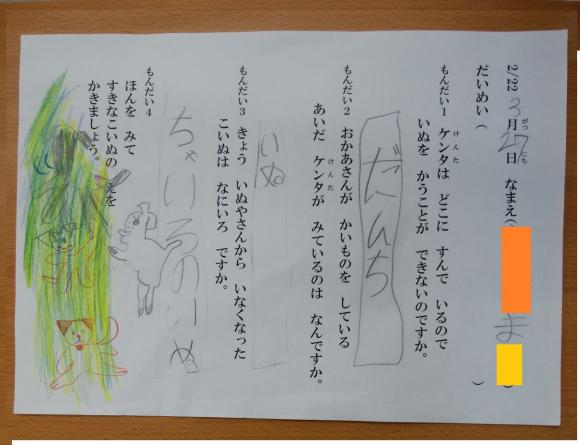 2/22 3月27日 なまえ( ま )
だいめい ( )
もんだい1 ケンタは どこに すんで いるので
いぬを かうことが できないのですか。
だんち
もんだい2 おかあさんが かいものを している
あいだ ケンタが みているのは なんですか。
いぬ
もんだい3 きょう いぬやさんから いなくなった
こいぬは なにいろ ですか。
ちゃいろのいぬ
もんだい4
ほんを みて
すきなこいぬの えを
かきましょう。